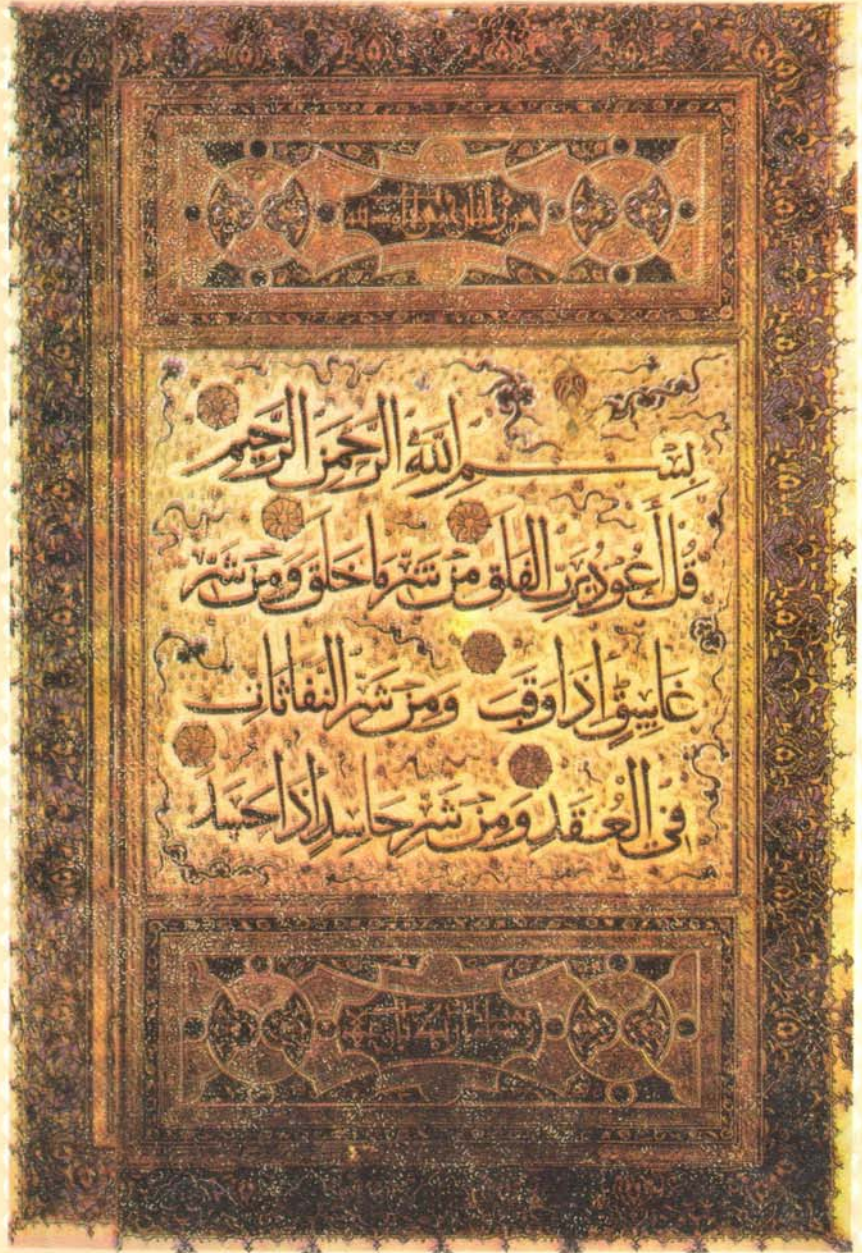 بِسْمِ اللَّهِ الرَّحْمَنِ الرَّحِيمِ
قُلْ أَعُوذُ بِرَبِّ الفَلَقِ مِن شَرِّ مَا خَلَقَ وَمِن شَرِّ
غَاسِقٍ إِذَا وَقَبَ وَمِن شَرِّ النَّفَّاثَاتِ
فِي العُقَدِ وَمِن شَرِّ حَاسِدٍ إِذَا حَسَدَ